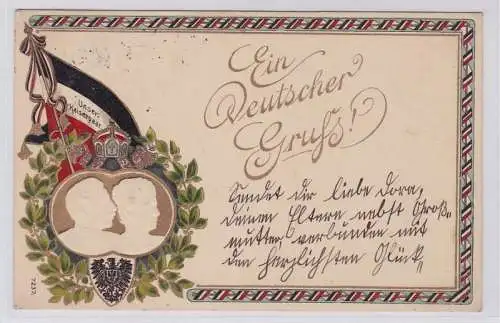 Unser
Kaiserpaar
Ein
Deutscher
Gruß!
Sendet dir liebe Dora,
deinen Eltern nebst Groß=
mutter, verbunden mit
den herzlichsten Glück,
7237.